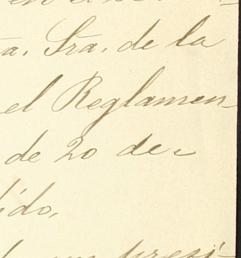 a. Sra. de la
el Reglamen-
de 20 de
dido,
presi-